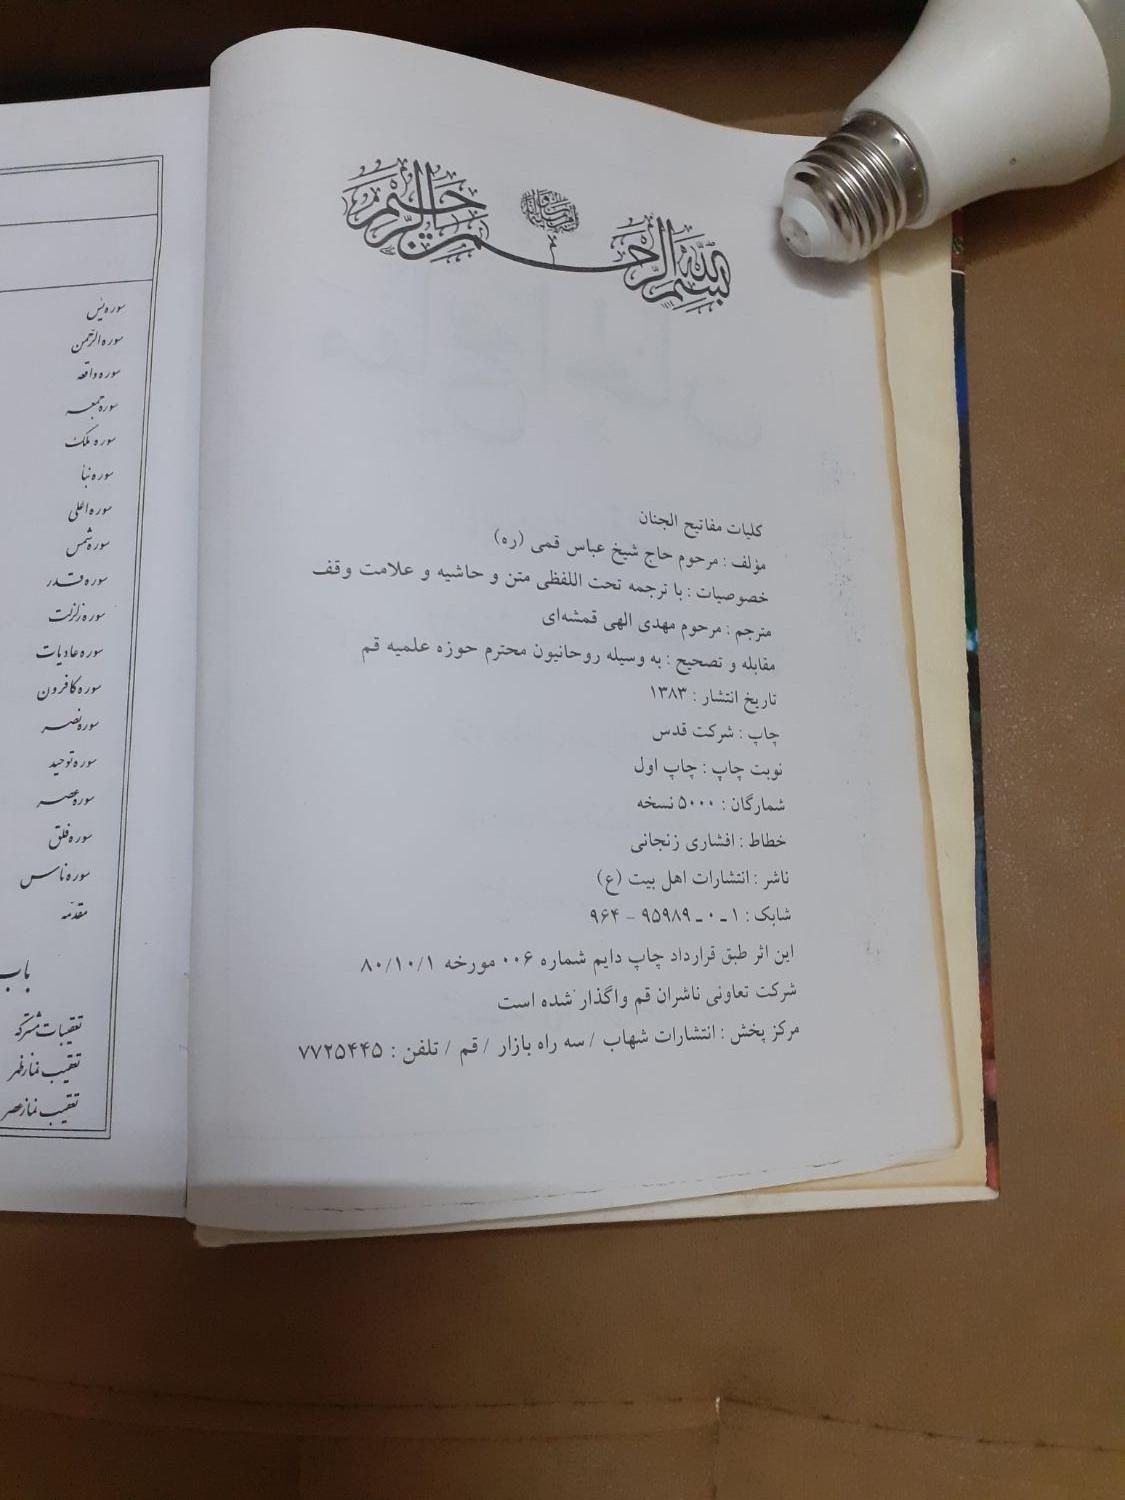 بسم الله الرحمن الرحیم
کلیات مفاتیح الجنان
مؤلف : مرحوم حاج شیخ عباس قمی (ره)
خصوصیات : با ترجمه تحت اللفظی متن و حاشیه و علامت وقف
مترجم : مرحوم مهدی الهی قمشه‌ای
مقابله و تصحیح : به وسیله روحانیون محترم حوزه علمیه قم
تاریخ انتشار : ۱۳۸۳
چاپ : شرکت قدس
نوبت چاپ : چاپ اول
شمارگان : ۵۰۰۰ نسخه
خطاط : افشاری زنجانی
ناشر : انتشارات اهل بیت (ع)
شابک : ۱ ـ ۰ ـ ۹۵۹۸۹ - ۹۶۴
این اثر طبق قرارداد چاپ دایم شماره ۰۰۶ مورخه ۸۰/۱۰/۱
شرکت تعاونی ناشران قم واگذار شده است
مرکز پخش : انتشارات شهاب / سه راه بازار / قم / تلفن : ۷۷۲۵۴۴۵
سوره یٰس
سوره الرّحمن
سوره واقعه
سوره جمعه
سوره ملک
سوره نبأ
سوره اعلی
سوره شمس
سوره قدر
سوره زلزلت
سوره عادیات
سوره کافرون
سوره نصر
سوره توحید
سوره عصر
سوره فلق
سوره ناس
مقدّمه
باب
تعقیبات مشترکه
تعقیب نماز ظهر
تعقیب نماز عصر